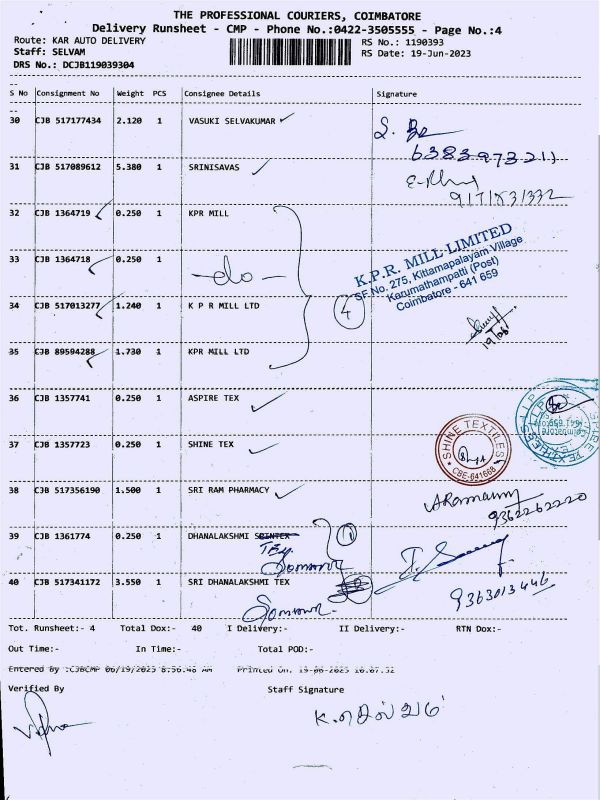 THE PROFESSIONAL COURIERS, COIMBATORE
Delivery Runsheet - CMP - Phone No.:0422-3505555 - Page No.:4
Route: KAR AUTO DELIVERY
RS No.: 1190393
Staff: SELVAM
RS Date: 19-Jun-2023
DRS No.: DCJB119039304
S No Consignment No Weight PCS Consignee Details Signature
30 CJB 517177434 2.120 1 VASUKI SELVAKUMAR
6383973211
31 CJB 517089612 5.380 1 SRINISAVAS
32 CJB 1364719 0.250 1 KPR MILL
33 CJB 1364718 0.250 1
-do-
K.P.R. MILL LIMITED
SF No. 275, Kittamapalayam Village
Karumathampatti (Post)
Coimbatore - 641 659
34 CJB 517013277 1.240 1 K P R MILL LTD
4
19/06
35 CJB 89594288 1.730 1 KPR MILL LTD
36 CJB 1357741 0.250 1 ASPIRE TEX
37 CJB 1357723 0.250 1 SHINE TEX
SHINE TEXTILES
CBE-641668
38 CJB 517356190 1.500 1 SRI RAM PHARMACY
9362262220
39 CJB 1361774 0.250 1 DHANALAKSHMI
1
40 CJB 517341172 3.550 1 SRI DHANALAKSHMI TEX
9363013446
Tot. Runsheet:- 4 Total Dox:- 40 I Delivery:- II Delivery:- RTN Dox:-
Out Time:- In Time:- Total POD:-
Entered By :CJBCMP 06/19/2023 8:56:48 AM Printed On. 19-06-2023 10.07.32
Verified By Staff Signature
க.செல்வம்